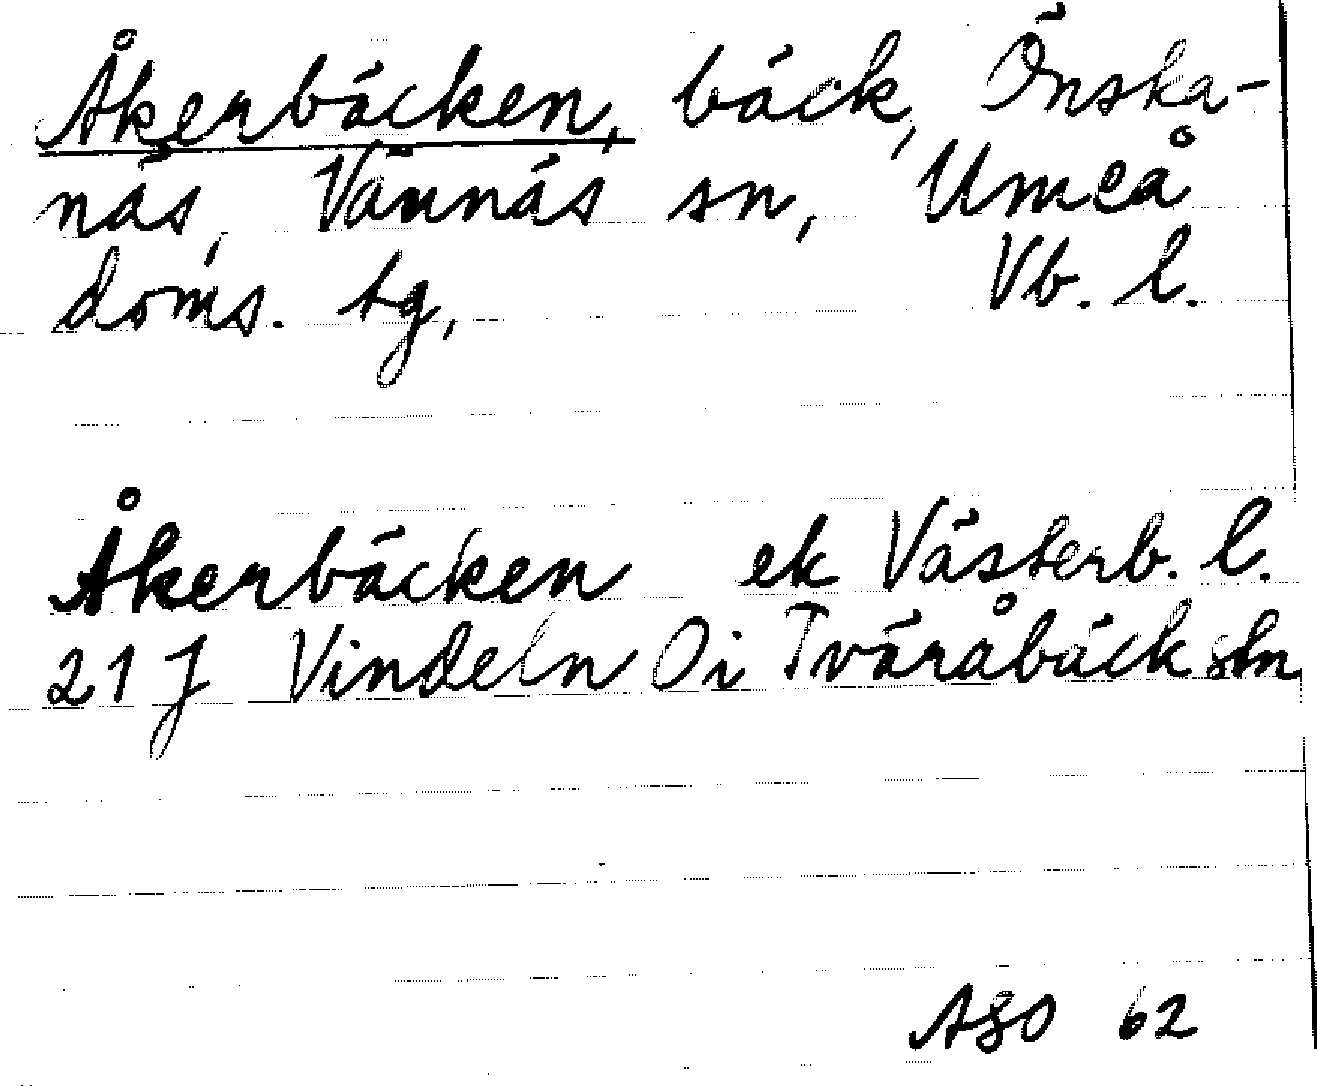 Åkerbäcken, bäck, Önska-
näs, Vännäs sn, Umeå
doms. tg, Vb. l.
Åkerbäcken ek Västerb. l.
21 J Vindeln Oi Tväråbäck stn
ASO 62